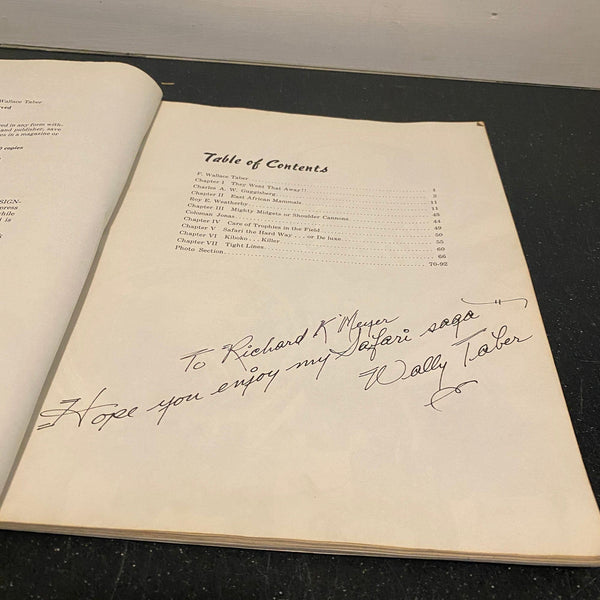 Wallace Taber
rved
ved in any form with-
and publisher, save
es in a magazine or
0 copies
SIGN-
press
while
t is
Table of Contents
F. Wallace Taber
Chapter I They Went That Away!!
Charles A. W. Guggisberg
Chapter II East African Mammals
Roy E. Weatherby
Chapter III Mighty Midgets or Shoulder Cannons
Coloman Jonas
Chapter IV Care of Trophies in the Field
Chapter V Safari the Hard Way . . . or De luxe
Chapter VI Kiboko . . . Killer
Chapter VII Tight Lines
Photo Section
11
44
49
50
55
60
66
70-92
To Richard K Meyer
Hope you enjoy my Safari saga
Wally Taber